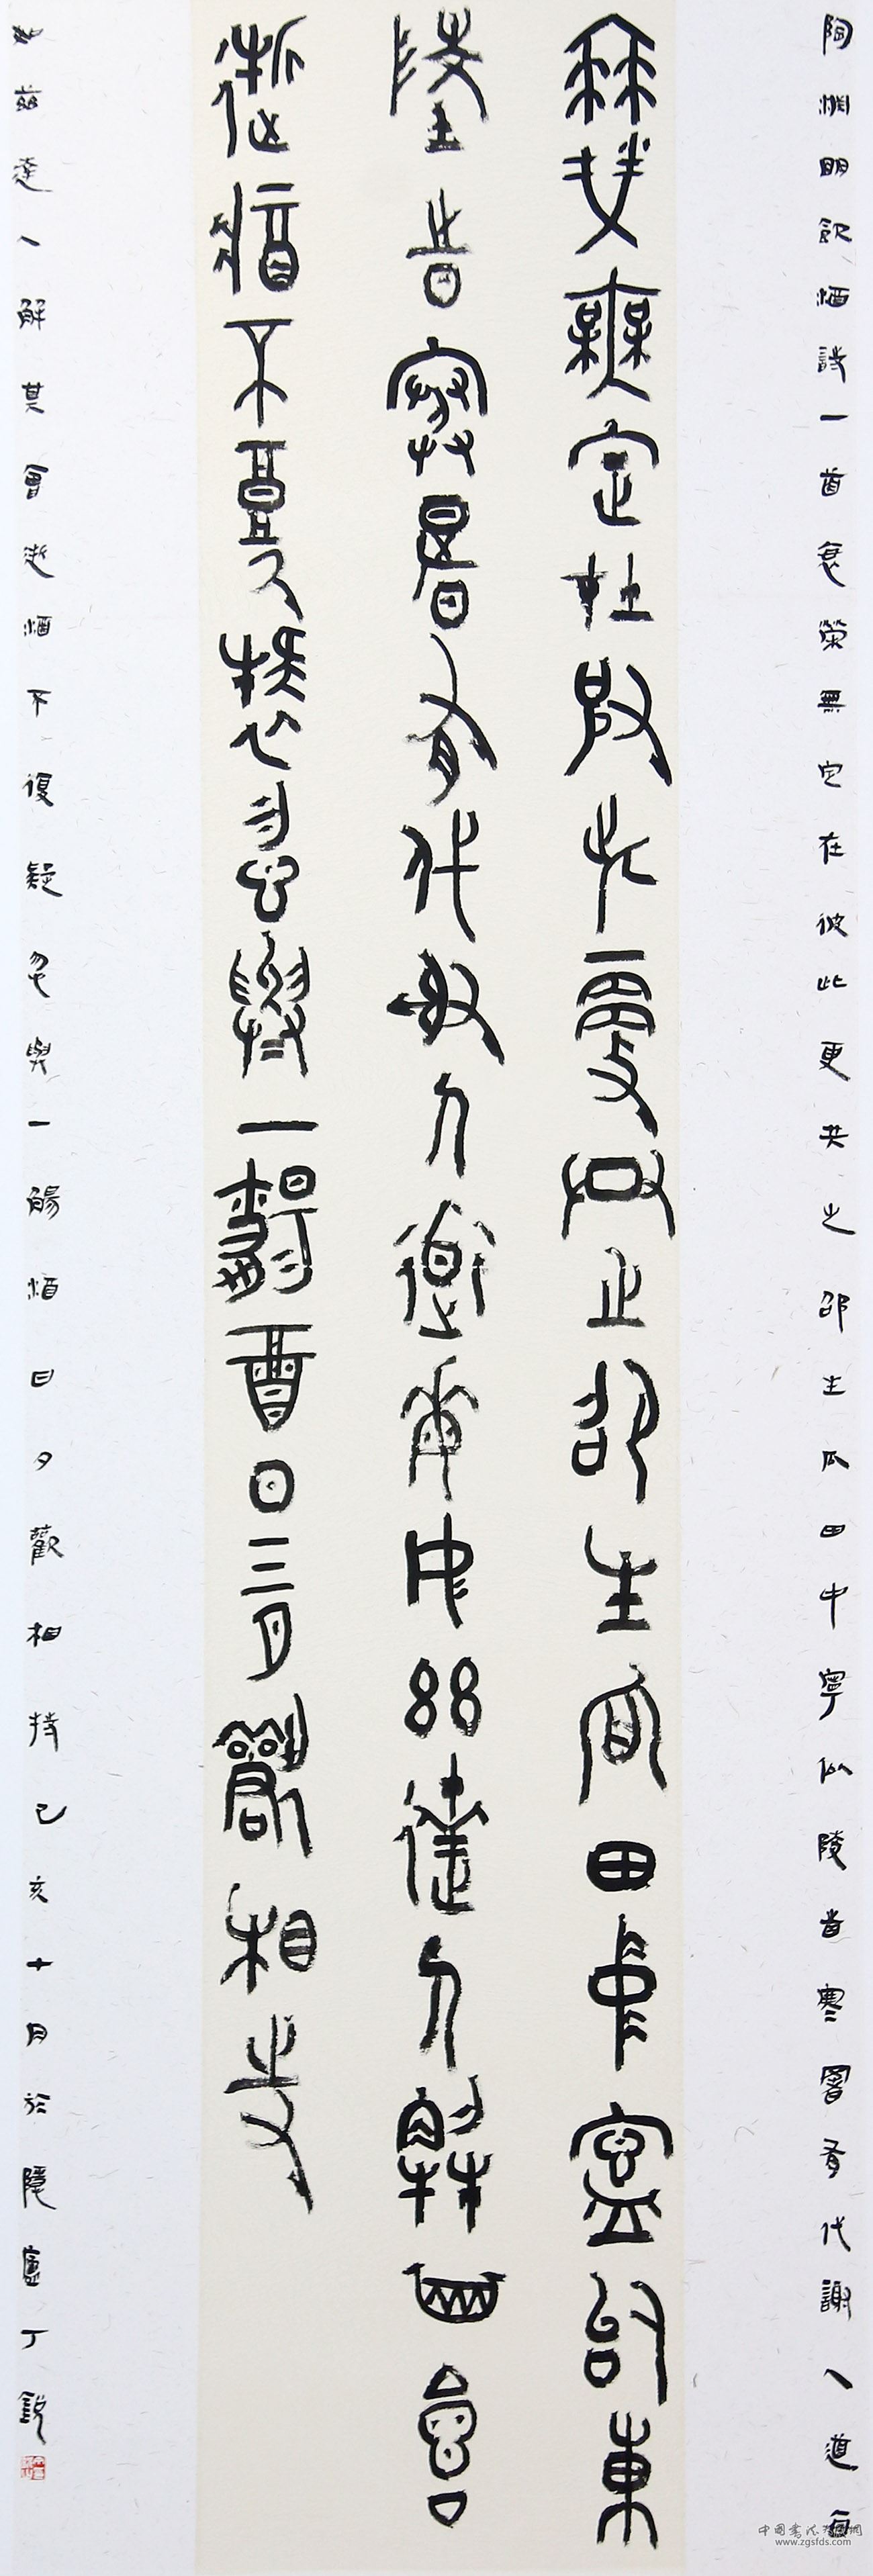 陶淵明飲酒詩一首衰榮無定在彼此更共之邵生瓜田中寧似陵旹寒暑有代謝人道每
衰榮無定在彼此更共之邵生瓜田中寧似東
陵旹寒暑有代謝人道每如茲達人解其會
逝將不復疑忽與一觴酒日夕歡相持
如茲達人解其會逝將不復疑忽與一觴酒日夕歡相持己亥十月於隱廬丁銳
www.zgsfds.com